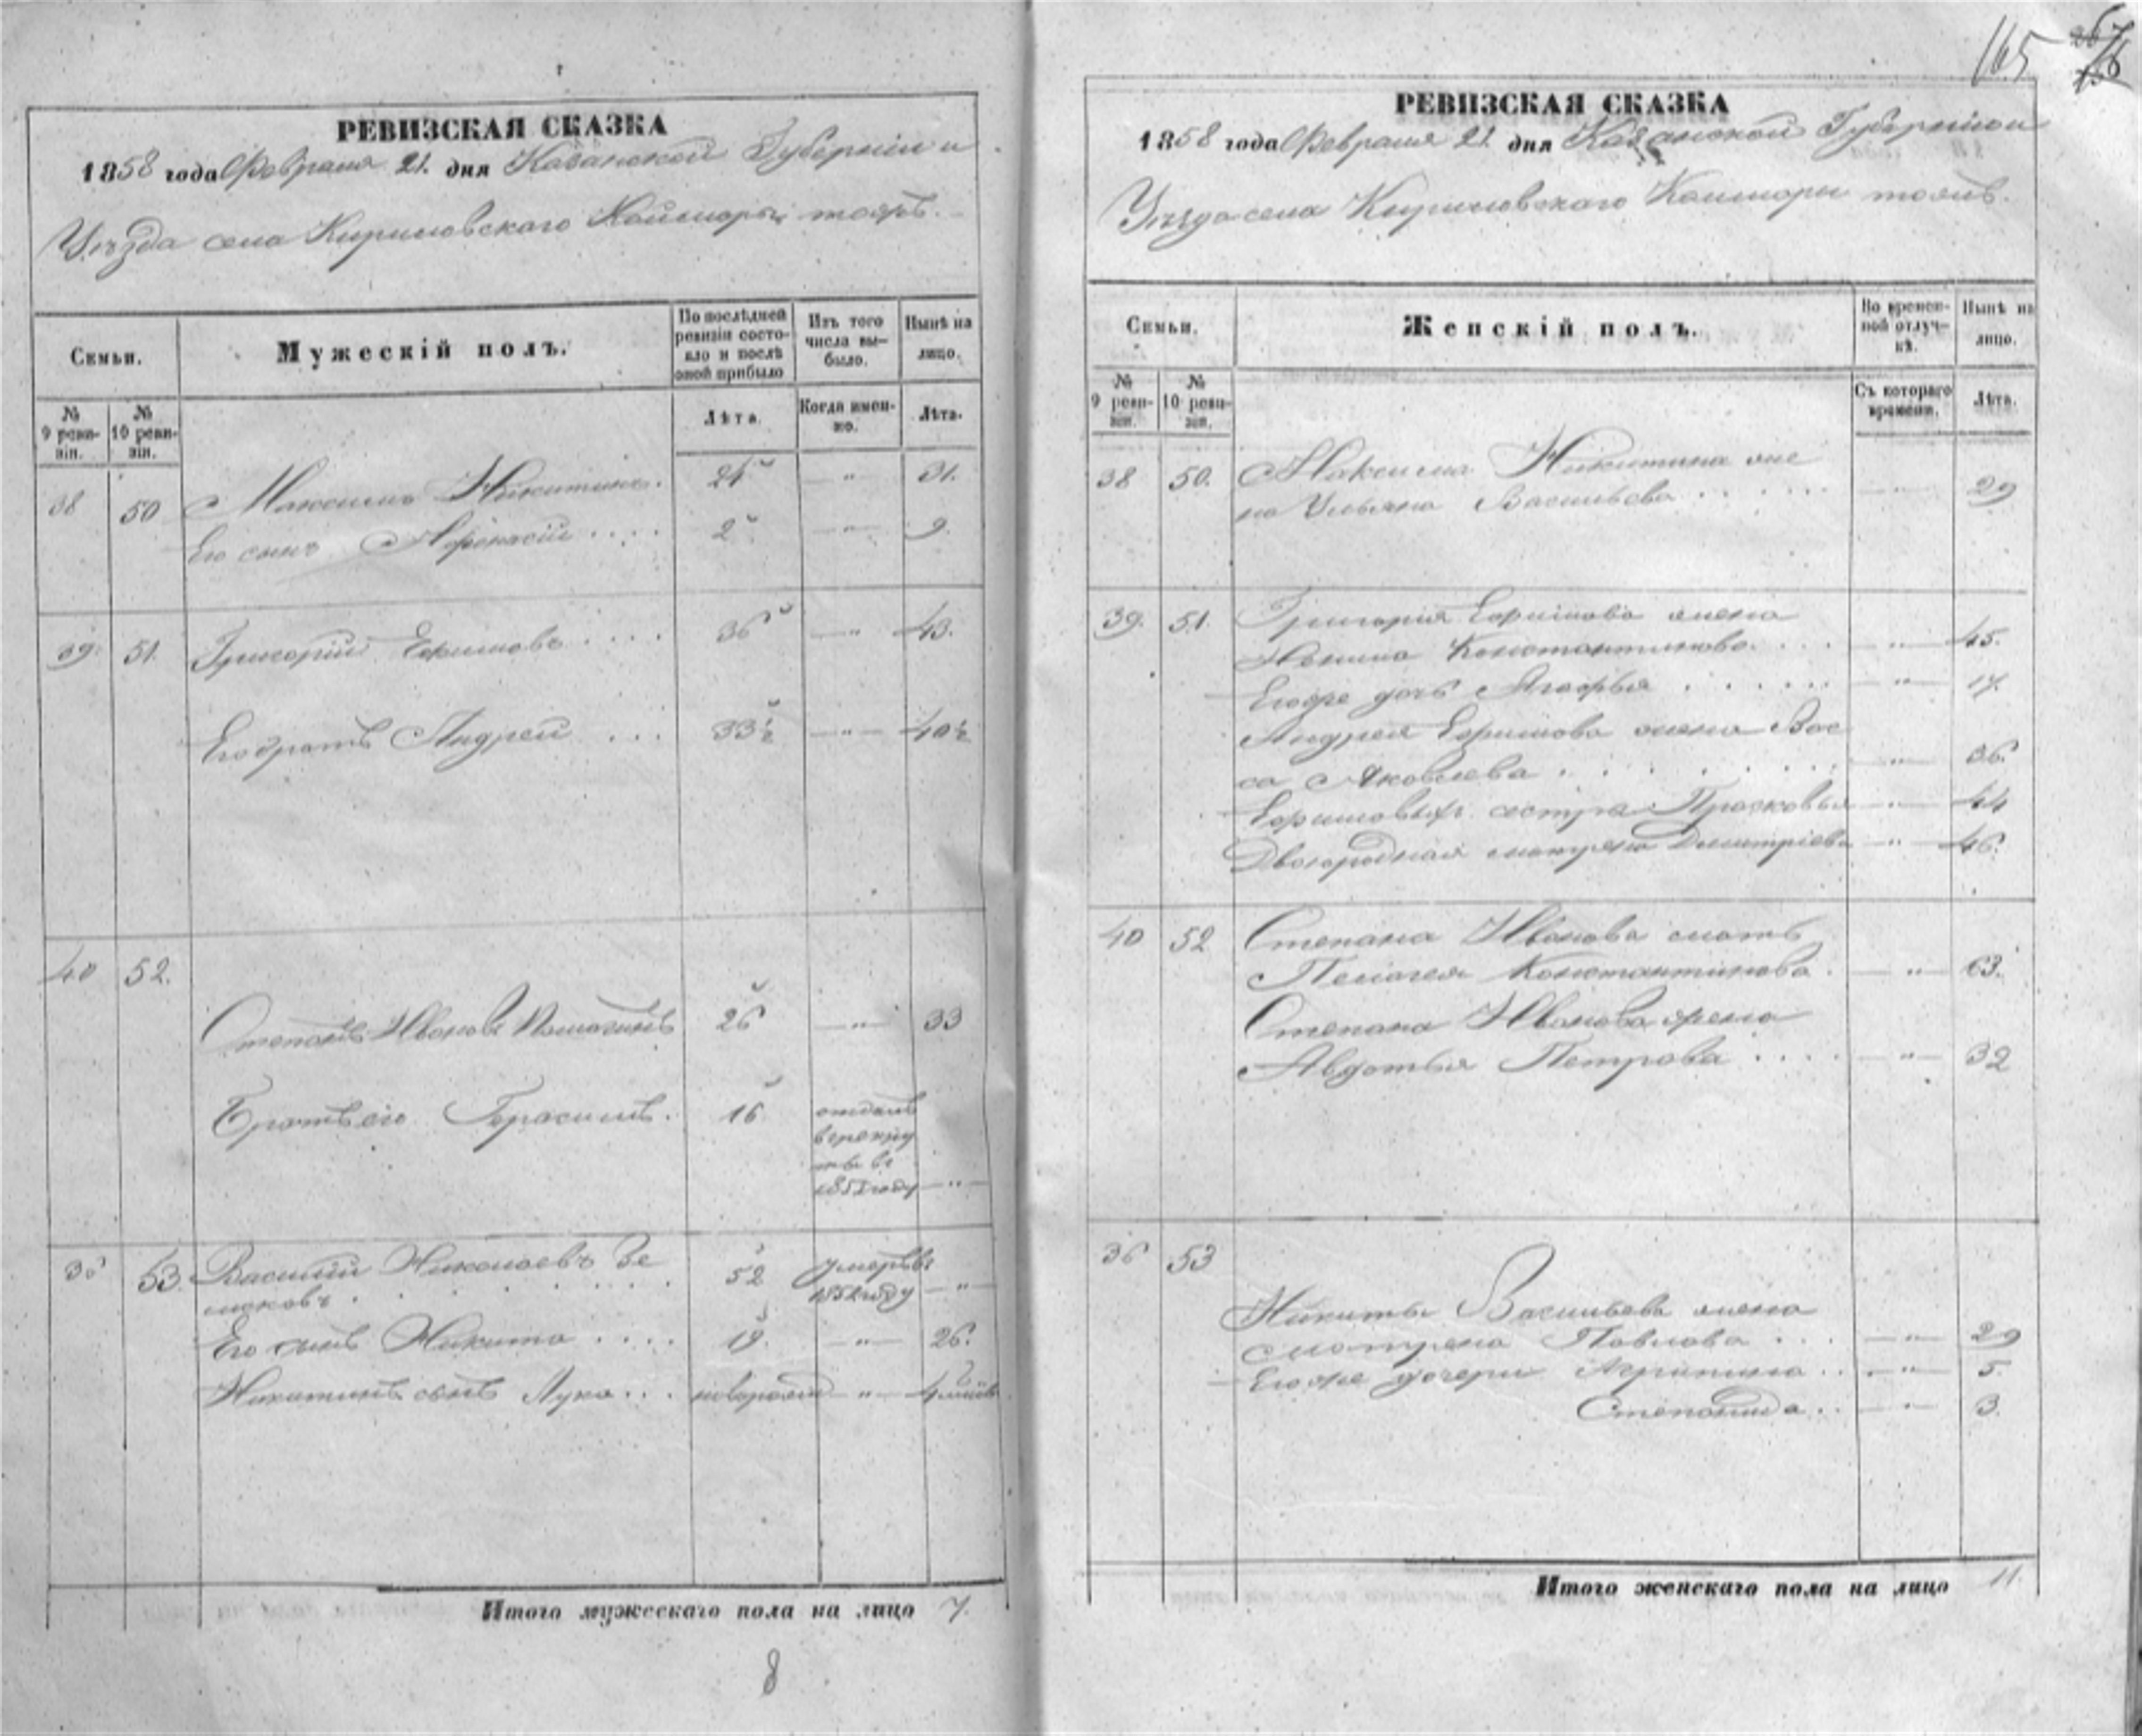 165
РЕВИЗСКАЯ СКАЗКА
1858 года Февраля 21. дня Казанской Губерніи и
Уѣзда села Кириловскаго
Семьи.
Мужескій полъ.
По послѣдней ревизіи состояло и послѣ оной прибыло
Изъ того числа выбыло.
Нынѣ на лицо.
№ 9 ревизіи.
№ 10 ревизіи.
Лѣта.
Когда именно.
Лѣта.
38 50 Максимъ Никитинъ. 24 — " — 31.
Его сынъ Афонасій .... 2 — " — 9.
39. 51. Григорій Ефимовъ .... 36 — " — 43.
Его братъ Андрей ... 33½ — " — 40½
40 52.
Степанъ Ивановъ 26 — " — 33
Братъ его Герасимъ. 16 отданъ
в рекру
ты въ
году — " —
53. Василій Николаевъ Зе
маковъ . 52 Умеръ въ
году — " —
Его сынъ Никита .... 19. — " — 26.
Никитинъ сынъ Лука ... — " —
Итого мужескаго пола на лицо 7.
8
РЕВИЗСКАЯ СКАЗКА
1858 года Февраля 21. дня Казанской Губерніи и
Уѣзда села Кириловскаго
Семьи.
Женскій полъ.
Во временной отлучкѣ.
Нынѣ на лицо.
№ 9 ревизіи.
№ 10 ревизіи.
Съ котораго времени.
Лѣта.
38 50. Максима Никитина же
на Ульяна Васильева — " — 29
39. 51. Григорія Ефимова жена
Константинова. — " — 45.
Его же дочь Агафья — " — 17.
Андрея Ефимова жена Вас
са Яковлева — " — 36.
Ефимовыхъ сестра Прасковья — " — 44
Двоюродная Дмитріева — " — 46.
40 52 Степана Иванова мать
Пелагея Константинова. — " — 63.
Степана Иванова жена
Авдотья Петрова .... — " — 32
36 53
Никиты Васильева жена
Матрена Павлова ... — " — 29
Его же дочери Агрипина .. — " — 5.
Степанида .. — " — 3.
Итого женскаго пола на лицо 11.